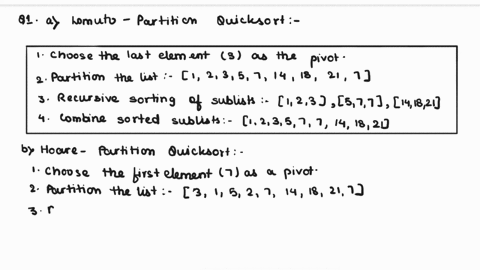 Q1. a) Lomuto - Partition Quicksort :-
1. Choose the last element (3) as the pivot.
2. Partition the list :- [1, 2, 3, 5, 7, 14, 18, 21, 7]
3. Recursive sorting of sublists :- [1,2,3], [5,7,7], [14,18,21]
4. Combine sorted sublists:- [1, 2, 3, 5, 7, 7, 14, 18, 21]
b) Hoare- Partition Quicksort :-
1. Choose the first element (7) as a pivot.
2. Partition the list :- [3, 1, 5, 2, 7, 14, 18, 21, 7]
3. r